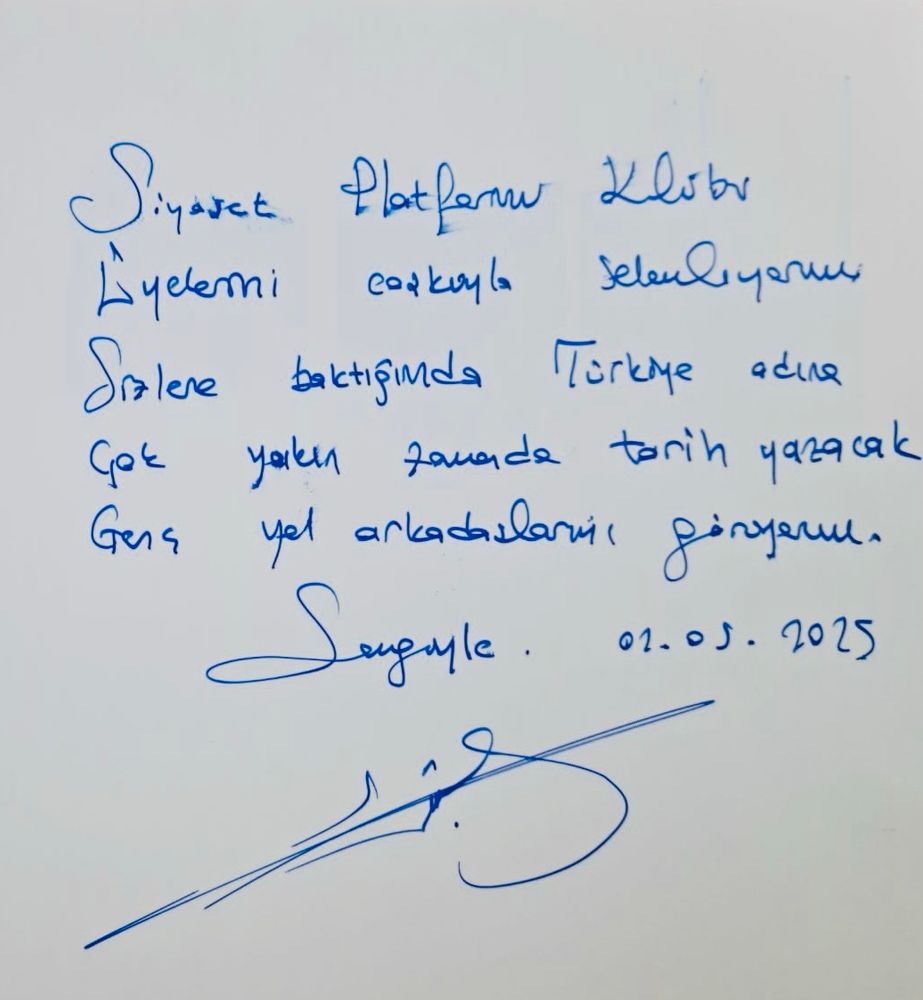 Siyaset Platformu Klübü
Üyelerini coşkuyla selamlıyorum
Sizlere baktığımda Türkiye adına
Çok yakın zamanda tarih yazacak
Genç yol arkadaşlarımı görüyorum.
Sevgiyle. 02.05.2025